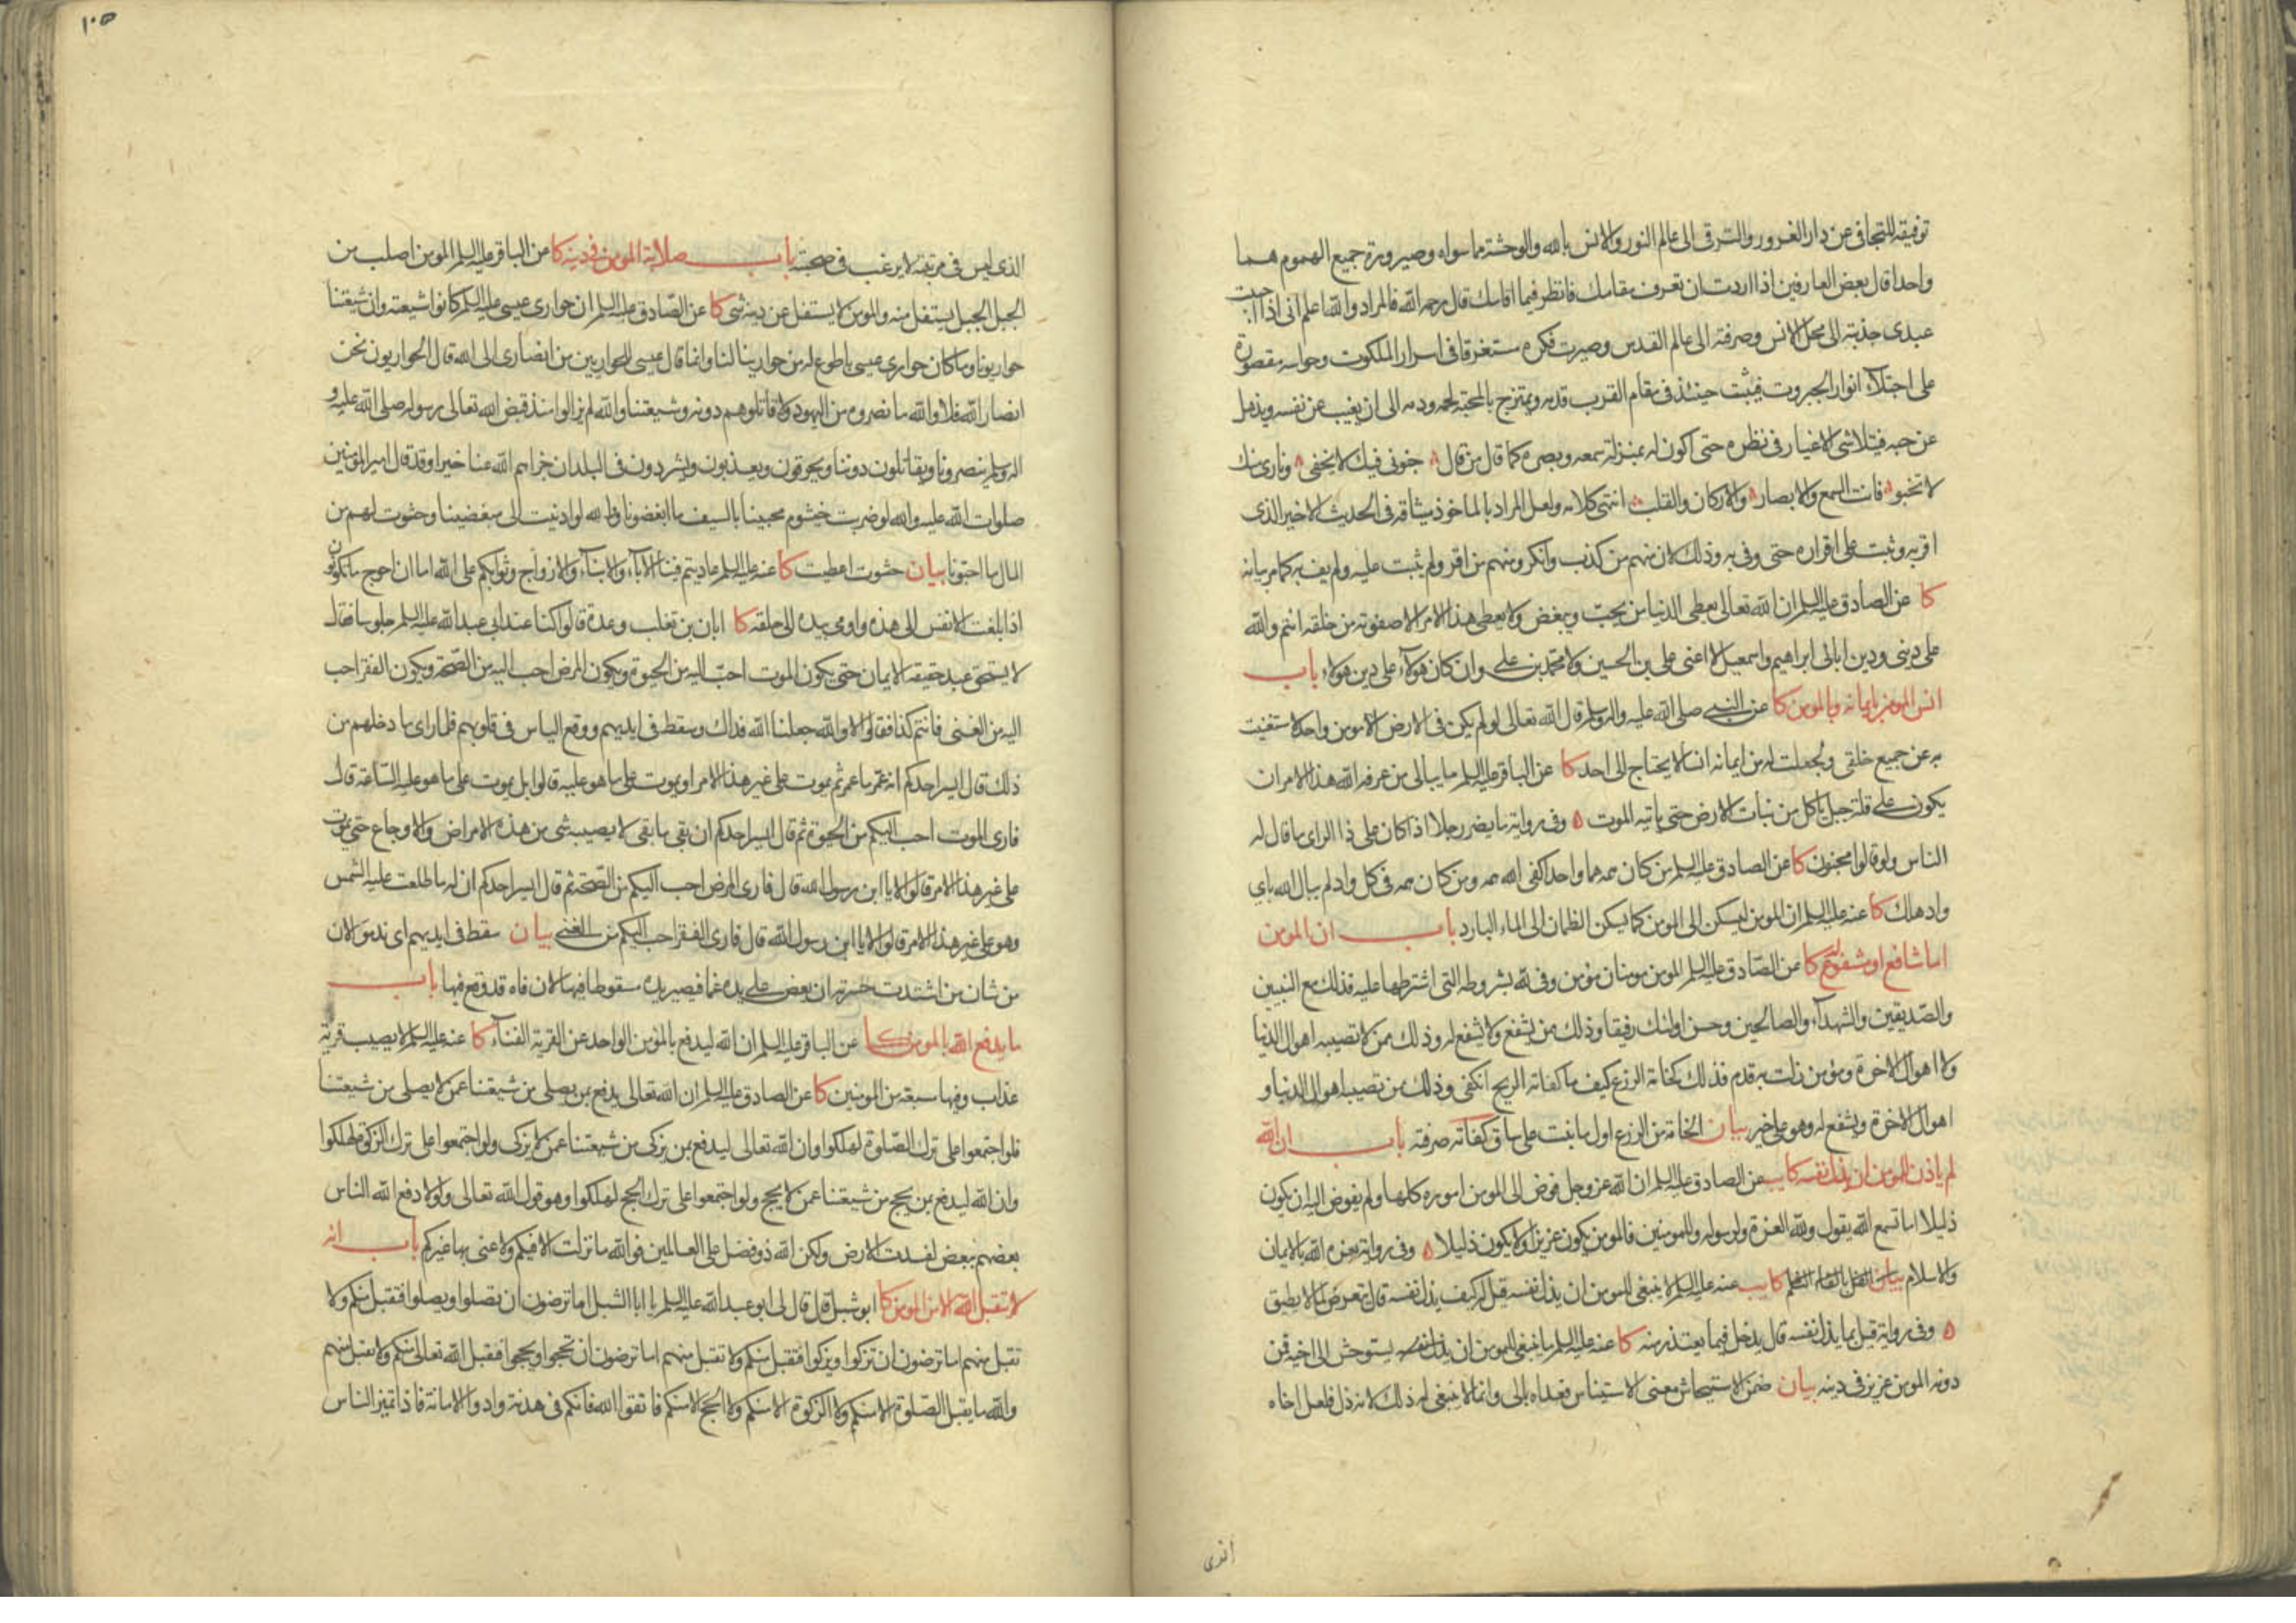 توفيقه للتجافى عن دار الغرور والترقى الى عالم النور والانس بالله والوحشة مما سواه وصيرورة جميع الهموم هما
واحدا قال بعض العارفين اذا اردت ان تعرف مقامك فانظر فيما اقامك قال رحمه الله فالمراد والله اعلم انى اذا احببت
عبدى جذبته الى محل الانس وصرفته الى عالم القدس وصيرت فكره مستغرقا فى اسرار الملكوت وحواسه مقصورة
على اجتلاء انوار الجبروت فيثبت حينئذ فى مقام القرب قدمه ويمتزج بالمحبة لحمه ودمه الى ان يغيب عن نفسه ويذهل
عن حسه فيتلاشى الاغيار فى نظره حتى اكون له بمنزلة سمعه وبصره كما قال من قال جنونى فيك لا يخفى ونارى منك
لا تخبو فانت السمع والابصار والاركان والقلب انتهى كلامه ولعل المراد بالماخوذ ميثاقه فى الحديث الاخير الذى
اقر به وثبت على اقراره حتى وفى به وذلك لان منهم من كذب وانكر ومنهم من اقر ولم يثبت عليه ولم يف به كما مر بيانه
كا عن الصادق عليه السلم ان الله تعالى يعطى الدنيا من يحب ويبغض ولا يعطى هذا الامر الا صفوته من خلقه انتم والله
على دينى ودين ابائى ابراهيم واسمعيل لا اعنى على بن الحسين ولا محمد بن على وان كان هولاء على دين هولاء باب
انس المومن بايمانه وبالمومن كا عن النبى صلى الله عليه واله وسلم قال الله تعالى لو لم يكن فى الارض الا مومن واحد لاستغنيت
به عن جميع خلقى ولجعلت له من ايمانه انسا لا يحتاج الى احد كا عن الباقر عليه السلم ما يبالى من عرفه الله هذا الامر ان
يكون على قلة جبل ياكل من نبات الارض حتى ياتيه الموت ه وفى رواية ما يضر رجلا اذا كان على ذا الراى ما قال له
الناس ولو قالوا مجنون كا عن الصادق عليه السلم من كان همه هما واحدا كفى الله همه ومن كان همه فى كل واد لم يبال الله باى
واد هلك كا عنه عليه السلم ان المومن ليسكن الى المومن كما يسكن الظمان الى الماء البارد باب ان المومن
اما شافع او مشفوع كا عن الصادق عليه السلم المومن مومنان مؤمن وفى لله بشروطه التى اشترطها عليه فذلك مع النبيين
والصديقين والشهداء والصالحين وحسن اولئك رفيقا وذلك من يشفع ولا يشفع له وذلك ممن لا تصيبه اهوال الدنيا
ولا اهوال الاخرة ومؤمن زلت به قدم فذلك كخامة الزرع كيف ما كفاته الريح انكفى وذلك من تصيبه اهوال الدنيا و
اهوال الاخرة ويشفع له وهو على خير بيان الخامة من الزرع اول ما ينبت على ساق كفاته صرفته باب ان الله
لم ياذن للمومن ان يذل نفسه كا يب عن الصادق عليه السلم ان الله عز وجل فوض الى المومن اموره كلها ولم يفوض اليه ان يكون
ذليلا اما تسمع الله يقول ولله العزة ولرسوله وللمومنين فالمومن يكون عزيزا ولا يكون ذليلا ه وفى رواية يعزه الله بالايمان
والاسلام بيان كا يب عنه عليه السلم لا ينبغى للمومن ان يذل نفسه قيل له كيف يذل نفسه قال يتعرض لما لا يطيق
ه وفى رواية قيل بما يذل نفسه قال يدخل فيما يعتذر منه كا عنه عليه السلم ما ينبغى للمومن ان يستوحش الى اخيه فمن
دونه المومن عزيز فى دينه بيان ضمن الاستيحاش معنى الاستيناس فعداه بالى وانما لا ينبغى له ذلك لانه ذل فلعل اخاه
الذى
١٠٥
الذى ليس فى مرتبته لا يرغب فى صحبته باب صلابة المومن فى دينه كا عن الباقر عليه السلم المومن اصلب من
الجبل الجبل يستفل منه والمومن لا يستفل من دينه شى كا عن الصادق عليه السلم ان حوارى عيسى عليه السلم كانوا شيعته وان شيعتنا
حواريونا وما كان حوارى عيسى باطوع له من حوارينا لنا وانما قال عيسى للحواريين من انصارى الى الله قال الحواريون نحن
انصار الله فلا والله ما نصروه من اليهود ولا قاتلوهم دونه وشيعتنا والله لم يزالوا منذ قبض الله تعالى رسوله صلى الله عليه و
اله وسلم ينصرونا ويقاتلون دوننا ويحرقون ويعذبون ويشردون فى البلدان جزاهم الله عنا خيرا وقد قال امير المؤمنين
صلوات الله عليه والله لو ضربت خيشوم محبينا بالسيف ما ابغضونا ووالله لو ادنيت الى مبغضينا وحثوت لهم من
المال ما احبونا بيان حثوت اعطيت كا عنه عليه السلم عاديتم فينا الاباء والابناء والازواج وثوابكم على الله اما ان احوج ما تكونون
اذا بلغت الانفس الى هذه واومى بيده الى حلقه كا ابان بن تغلب وعدة قالوا كنا عند ابى عبد الله عليه السلم جلوسا فقال
لا يستحق عبد حقيقة الايمان حتى يكون الموت احب اليه من الحيوة ويكون المرض احب اليه من الصحة ويكون الفقر احب
اليه من الغنى فانتم كذا فقالوا لا والله جعلنا الله فداك وسقط فى ايديهم ووقع الياس فى قلوبهم فلما راى ما دخلهم من
ذلك قال ايسر احدكم انه عمر ما عمر ثم يموت على غير هذا الامر او يموت على ما هو عليه قالوا بل يموت على ما هو عليه الساعة قال
فارى الموت احب اليكم من الحيوة ثم قال ايسر احدكم ان بقى ما بقى لا يصيبه شى من هذه الامراض والاوجاع حتى يموت
على غير هذا الامر قالوا لا يا ابن رسول الله قال فارى المرض احب اليكم من الصحة ثم قال ايسر احدكم ان له ما طلعت عليه الشمس
وهو على غير هذا الامر قالوا لا يا ابن رسول الله قال فارى الفقر احب اليكم من الغنى بيان سقط فى ايديهم اى ندموا لان
من شان من اشتدت حسرته ان يعض على يده غما فيصير يده مسقوطا فيها لان فاه قد وقع فيها باب
ما يدفع الله بالمومن كا عن الباقر عليه السلم ان الله ليدفع بالمؤمن الواحد عن القرية الفناء كا عنه عليه السلم لا يصيب قرية
عذاب وفيها سبعة من المومنين كا عن الصادق عليه السلم ان الله تعالى يدفع بمن يصلى من شيعتنا عمن لا يصلى من شيعتنا
فلو اجتمعوا على ترك الصلوة لهلكوا وان الله تعالى ليدفع بمن يزكى من شيعتنا عمن لا يزكى ولو اجتمعوا على ترك الزكوة لهلكوا
وان الله ليدفع بمن يحج من شيعتنا عمن لا يحج ولو اجتمعوا على ترك الحج لهلكوا وهو قول الله تعالى ولولا دفع الله الناس
بعضهم ببعض لفسدت الارض ولكن الله ذو فضل على العالمين فوالله ما نزلت الا فيكم ولا عنى بها غيركم باب انه
لا تقبل الله الا من المومن كا ابو شبل قال قال لى ابو عبد الله عليه السلم يا ابا الشبل اما ترضون ان تصلوا ويصلوا فتقبل منكم ولا
تقبل منهم اما ترضون ان تزكوا ويزكوا فتقبل منكم ولا تقبل منهم اما ترضون ان تحجوا ويحجوا فتقبل الله تعالى منكم ولا تقبل منهم
والله ما يقبل الصلوة الا منكم ولا الزكوة الا منكم ولا الحج الا منكم فاتقوا الله فانكم فى هدنة وادوا الامانة فاذا تميز الناس